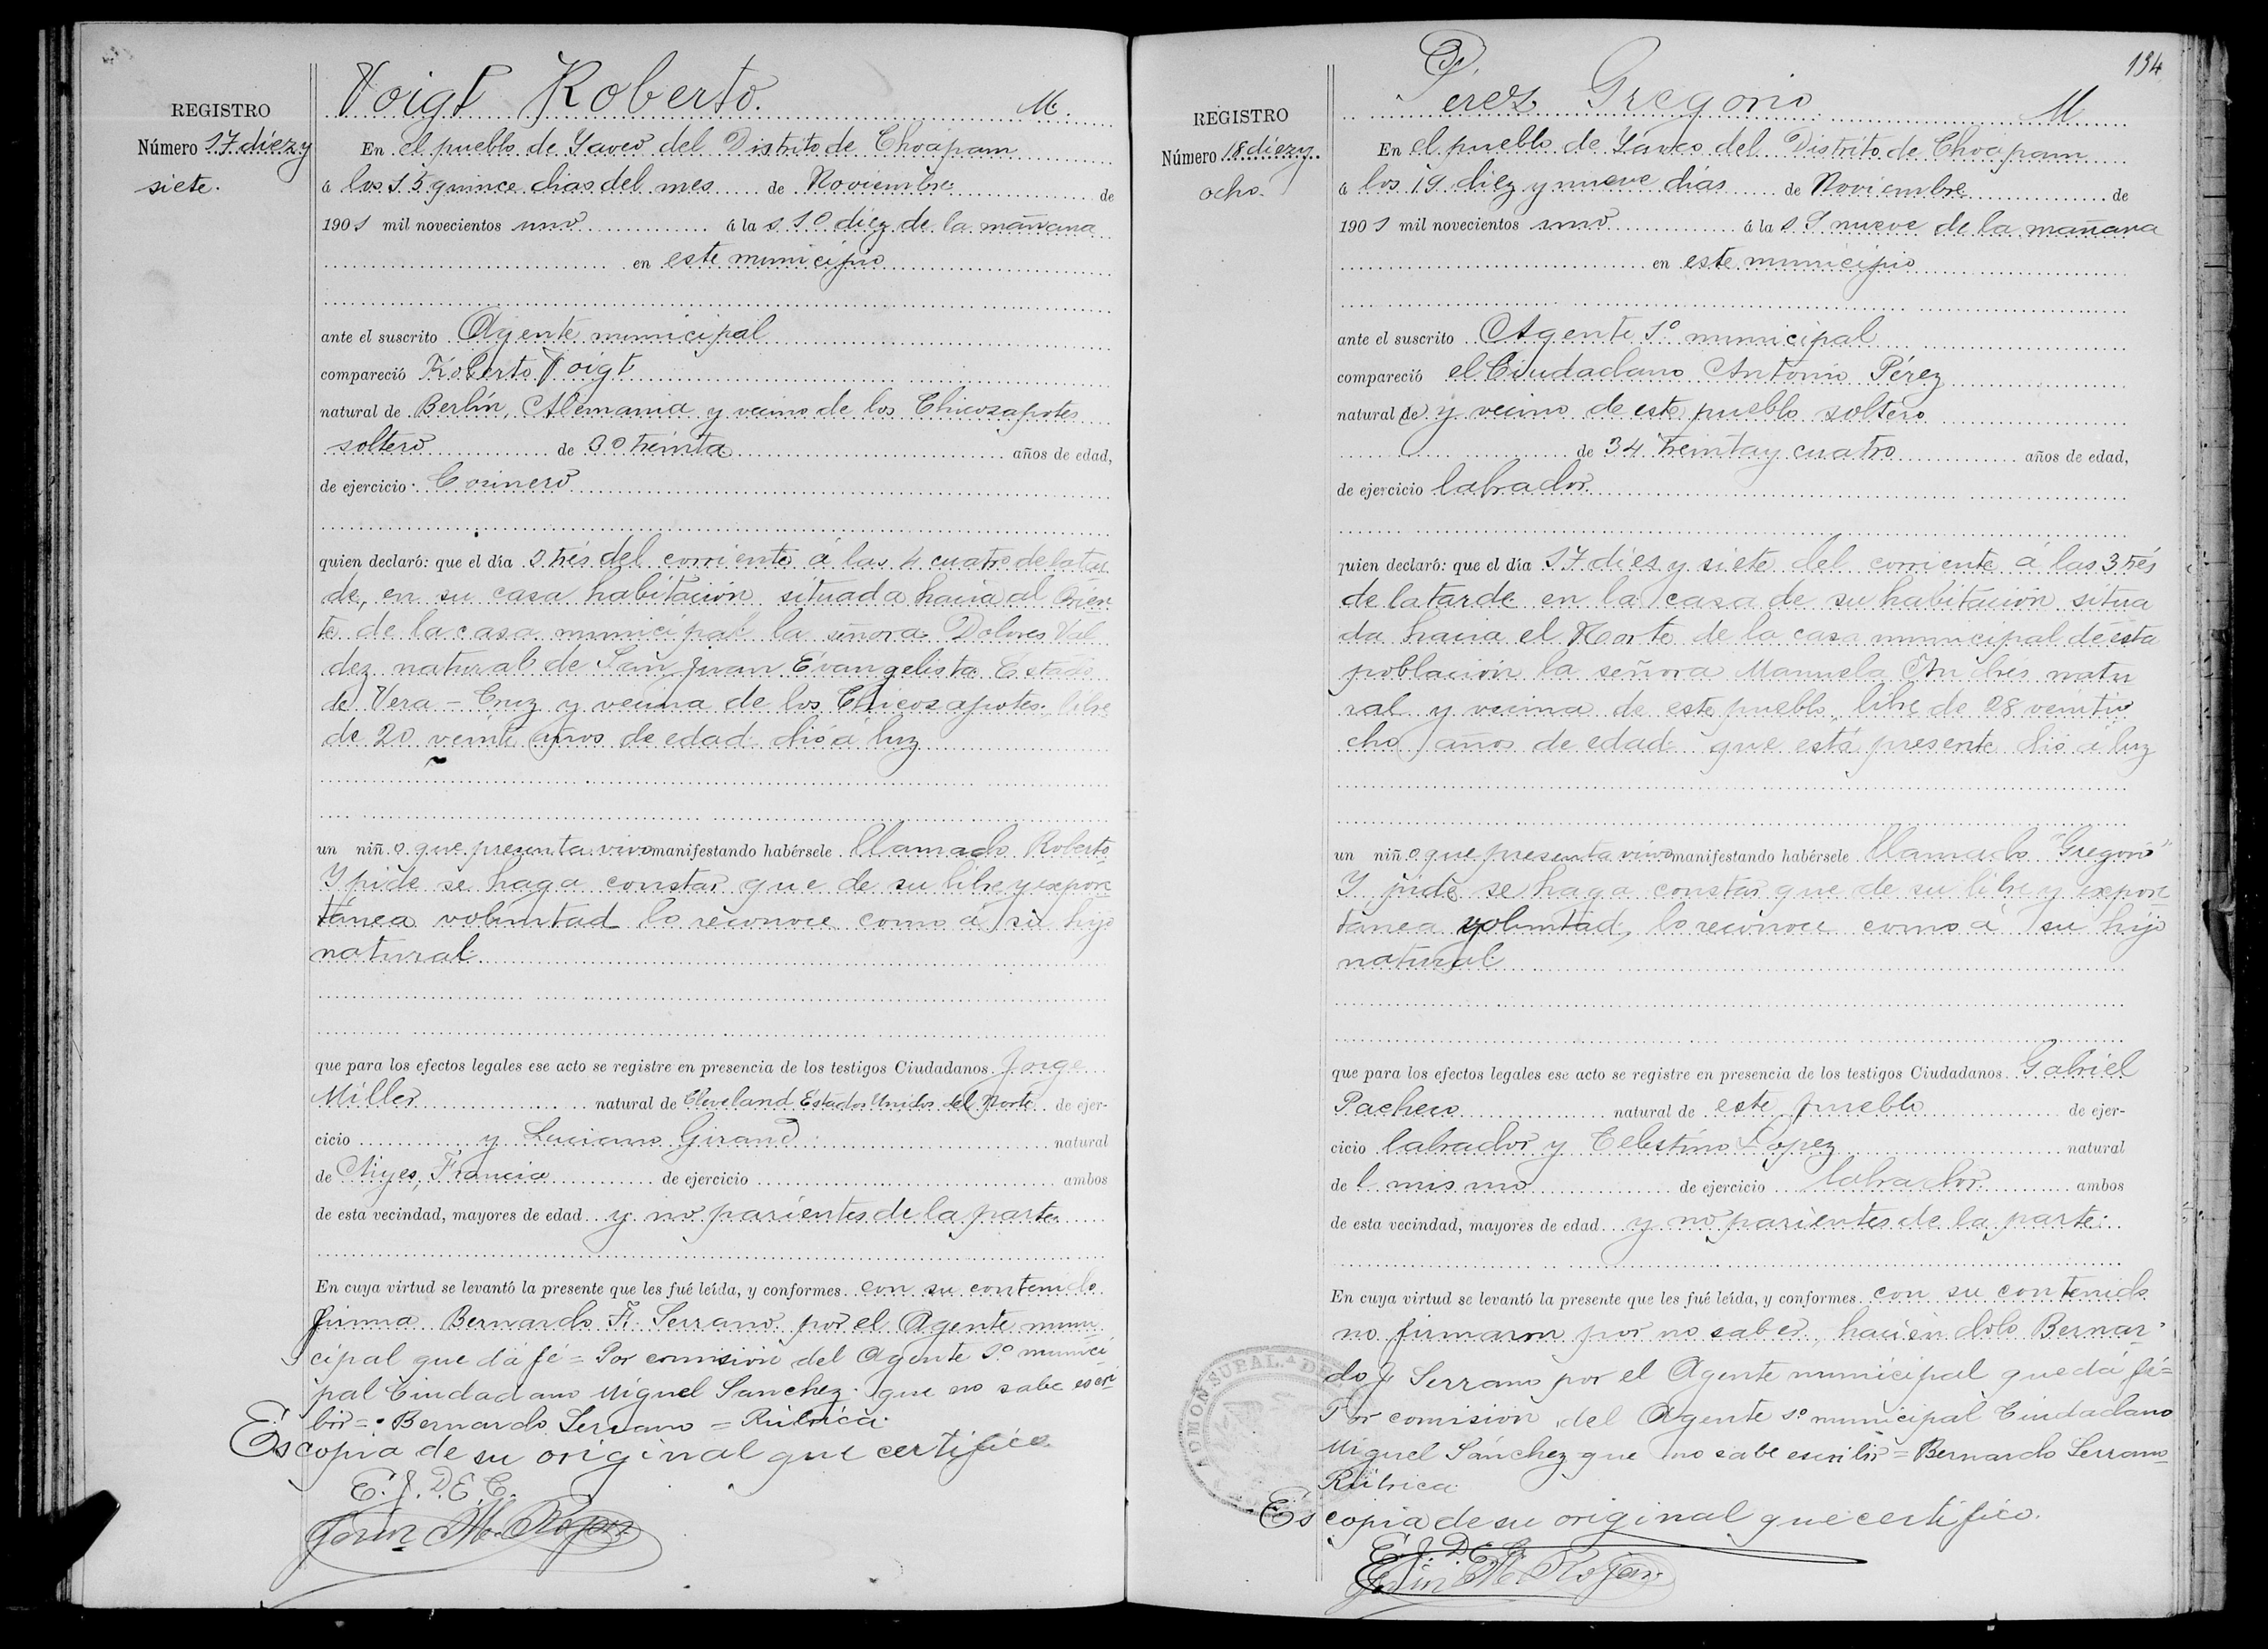 Voigt Roberto. M.
REGISTRO
Número 17 diez y
siete.
En el pueblo de Yaveo del Distrito de Choapam
á los 15 quince dias del mes de Noviembre de
1901 mil novecientos uno á la s 10 diez de la mañana
en este municipio
ante el suscrito Agente municipal
compareció Roberto Voigt
natural de Berlín, Alemania y vecino de los Chicozapotes
soltero de 30 treinta años de edad,
de ejercicio Cocinero
quien declaró: que el día 3 trés del corriente á las 4 cuatro de la tar
de, en su casa habitación situada hacia al Orien
te de la casa municipal la señora Dolores Val
dez natural de San Juan Evangelista Estado
de Vera-Cruz y vecina de los Chicozapotes, libre
de 20 veinte años de edad dió á luz
un niñ o que presenta vivo manifestando habérsele llamado Roberto
Y pide se haga constar que de su libre y expon
tánea voluntad lo reconoce como á su hijo
natural.
que para los efectos legales ese acto se registre en presencia de los testigos Ciudadanos Jorge
Miller natural de Cleveland Estados Unidos del Norte de ejer-
cicio y Luciano Girand natural
de Niyes, Francia de ejercicio ambos
de esta vecindad, mayores de edad y no parientes de la parte
En cuya virtud se levantó la presente que les fué leída, y conformes con su contenido
firma Bernardo F. Serrano por el Agente muni
cipal que dá fé = Por comisión del Agente 1º munici
pal Ciudadano Miguel Sanchez que no sabe escri
bir = Bernardo Serrano = Rúbrica.
Es copia de su original que certifico
E. J. D. E. C.
134
Perez Gregorio M
REGISTRO
Número 18 diez y
ocho.
En el pueblo de Yaveo del Distrito de Choapam
á los 19 diez y nueve días de Noviembre de
1901 mil novecientos uno á la s 9 nueve de la mañana
en este municipio
ante el suscrito Agente 1º municipal
compareció el Ciudadano Antonio Pérez
natural de y vecino de este pueblo soltero
de 34 treinta y cuatro años de edad,
de ejercicio labrador
quien declaró: que el día 17 diez y siete del corriente á las 3 trés
de la tarde en la casa de su habitación situa
da hacia el Norte de la casa municipal de ésta
población la señora Manuela Andrés natu
ral y vecina de este pueblo, libre de 28 veintio
cho años de edad que está presente dió á luz
un niñ o que presenta vivo manifestando habérsele llamado "Gregorio"
Y pide se haga constar que de su libre y expon
tánea voluntad, lo reconoce como á su hijo
natural
que para los efectos legales ese acto se registre en presencia de los testigos Ciudadanos Gabriel
Pacheco natural de este pueblo de ejer-
cicio labrador y Celestino Lopez natural
de l mismo de ejercicio labrador ambos
de esta vecindad, mayores de edad y no parientes de la parte
En cuya virtud se levantó la presente que les fué leída, y conformes con su contenido
no firmaron por no saber, haciendolo Bernar
do F Serrano por el Agente municipal que dá fé=
Por comision del Agente 1º municipal Ciudadano
Miguel Sánchez que no sabe escribir = Bernardo Serrano
Rúbrica
Es copia de su original que certifico.
E. J. D. E. C.